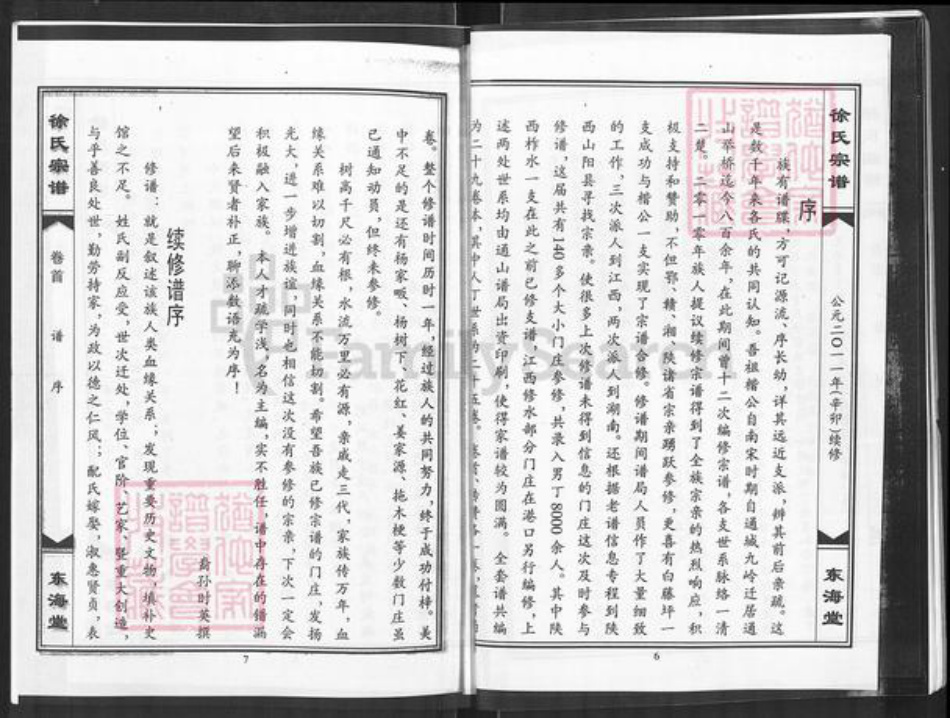 徐氏宗谱
公元二〇一一年(辛卯)续修
东海堂
序
族有谱牒,方可记源流、序长幼、详其远近支派,辨其前后亲疏。这
是数千年来各氏的共同认知。吾祖楷公自南宋时期自通城九岭迁居通
山珓桥迄今八百余年,在此期间曾十二次编修宗谱,各支世系脉络一清
二楚。二零一零年族人提议续修宗谱得到了全族宗亲的热烈响应,积
极支持和赞助,不但鄂、赣、湘、陕诸省宗亲踊跃参修,更喜有白藤坪一
支成功与楷公一支实现了宗谱合修。修谱期间谱局人员作了大量细致
的工作,三次派人到江西,两次派人到湖南。还根据老谱信息专程到陕
西山阳县寻找宗亲。使很多上次修谱未得到信息的门庄这次及时参与
修谱,这届共有140多个大小门庄参修,共录入男丁8000余人。其中陕
西柞水一支在此之前已修支谱,江西修水部分门庄在港口另行编修,上
述两处世系均由通山谱局出资印刷,使得家谱较为圆满。全套谱共编
为二十九卷本,其中人丁世系为二十五卷。卷首、
6
徐氏宗谱
卷首
谱序
东海堂
卷。整个修谱时间历时一年,经过族人的共同努力,终于成功付梓。美
中不足的是还有杨家畈、杨树下、花红、姜家源、拖木梗等少数门庄虽
已通知动员,但终未参修。
树高千尺必有根,水流万里必有源,亲戚走三代,家族传万年,血
缘关系难以切割,血缘关系不能切割。希望吾族已修宗谱的门庄,发扬
光大,进一步增进族谊,同时也相信这次没有参修的宗亲,下次一定会
积极融入家族。本人才疏学浅,名为主编,实不胜任,谱中存在的错漏
望后来贤者补正,聊添数语充为序!
裔孙时英撰
续修谱序
修谱:就是叙述该族人类血缘关系;发现重要历史文物,填补史
馆之不足。姓氏副反应受,世次迁处,学位、官阶、艺家、竖重大创造,
与乎善良处世,勤劳持家,为政以德之仁风;配氏嫁娶,淑惠贤贞,表
7
FamilySearch